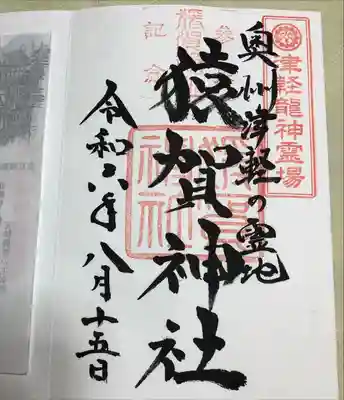 津軽龍神霊場
奥州津軽の霊地
猿賀神社
猿賀
神社
令和六年八月十五日